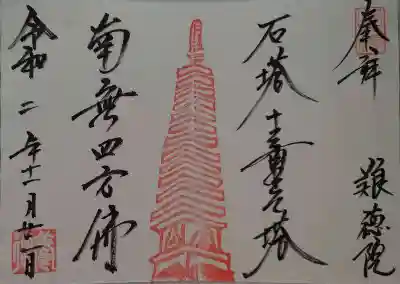 奉拝
徳院
石塔 十三重 塔
南無四方佛
令和二年十一月廿一日